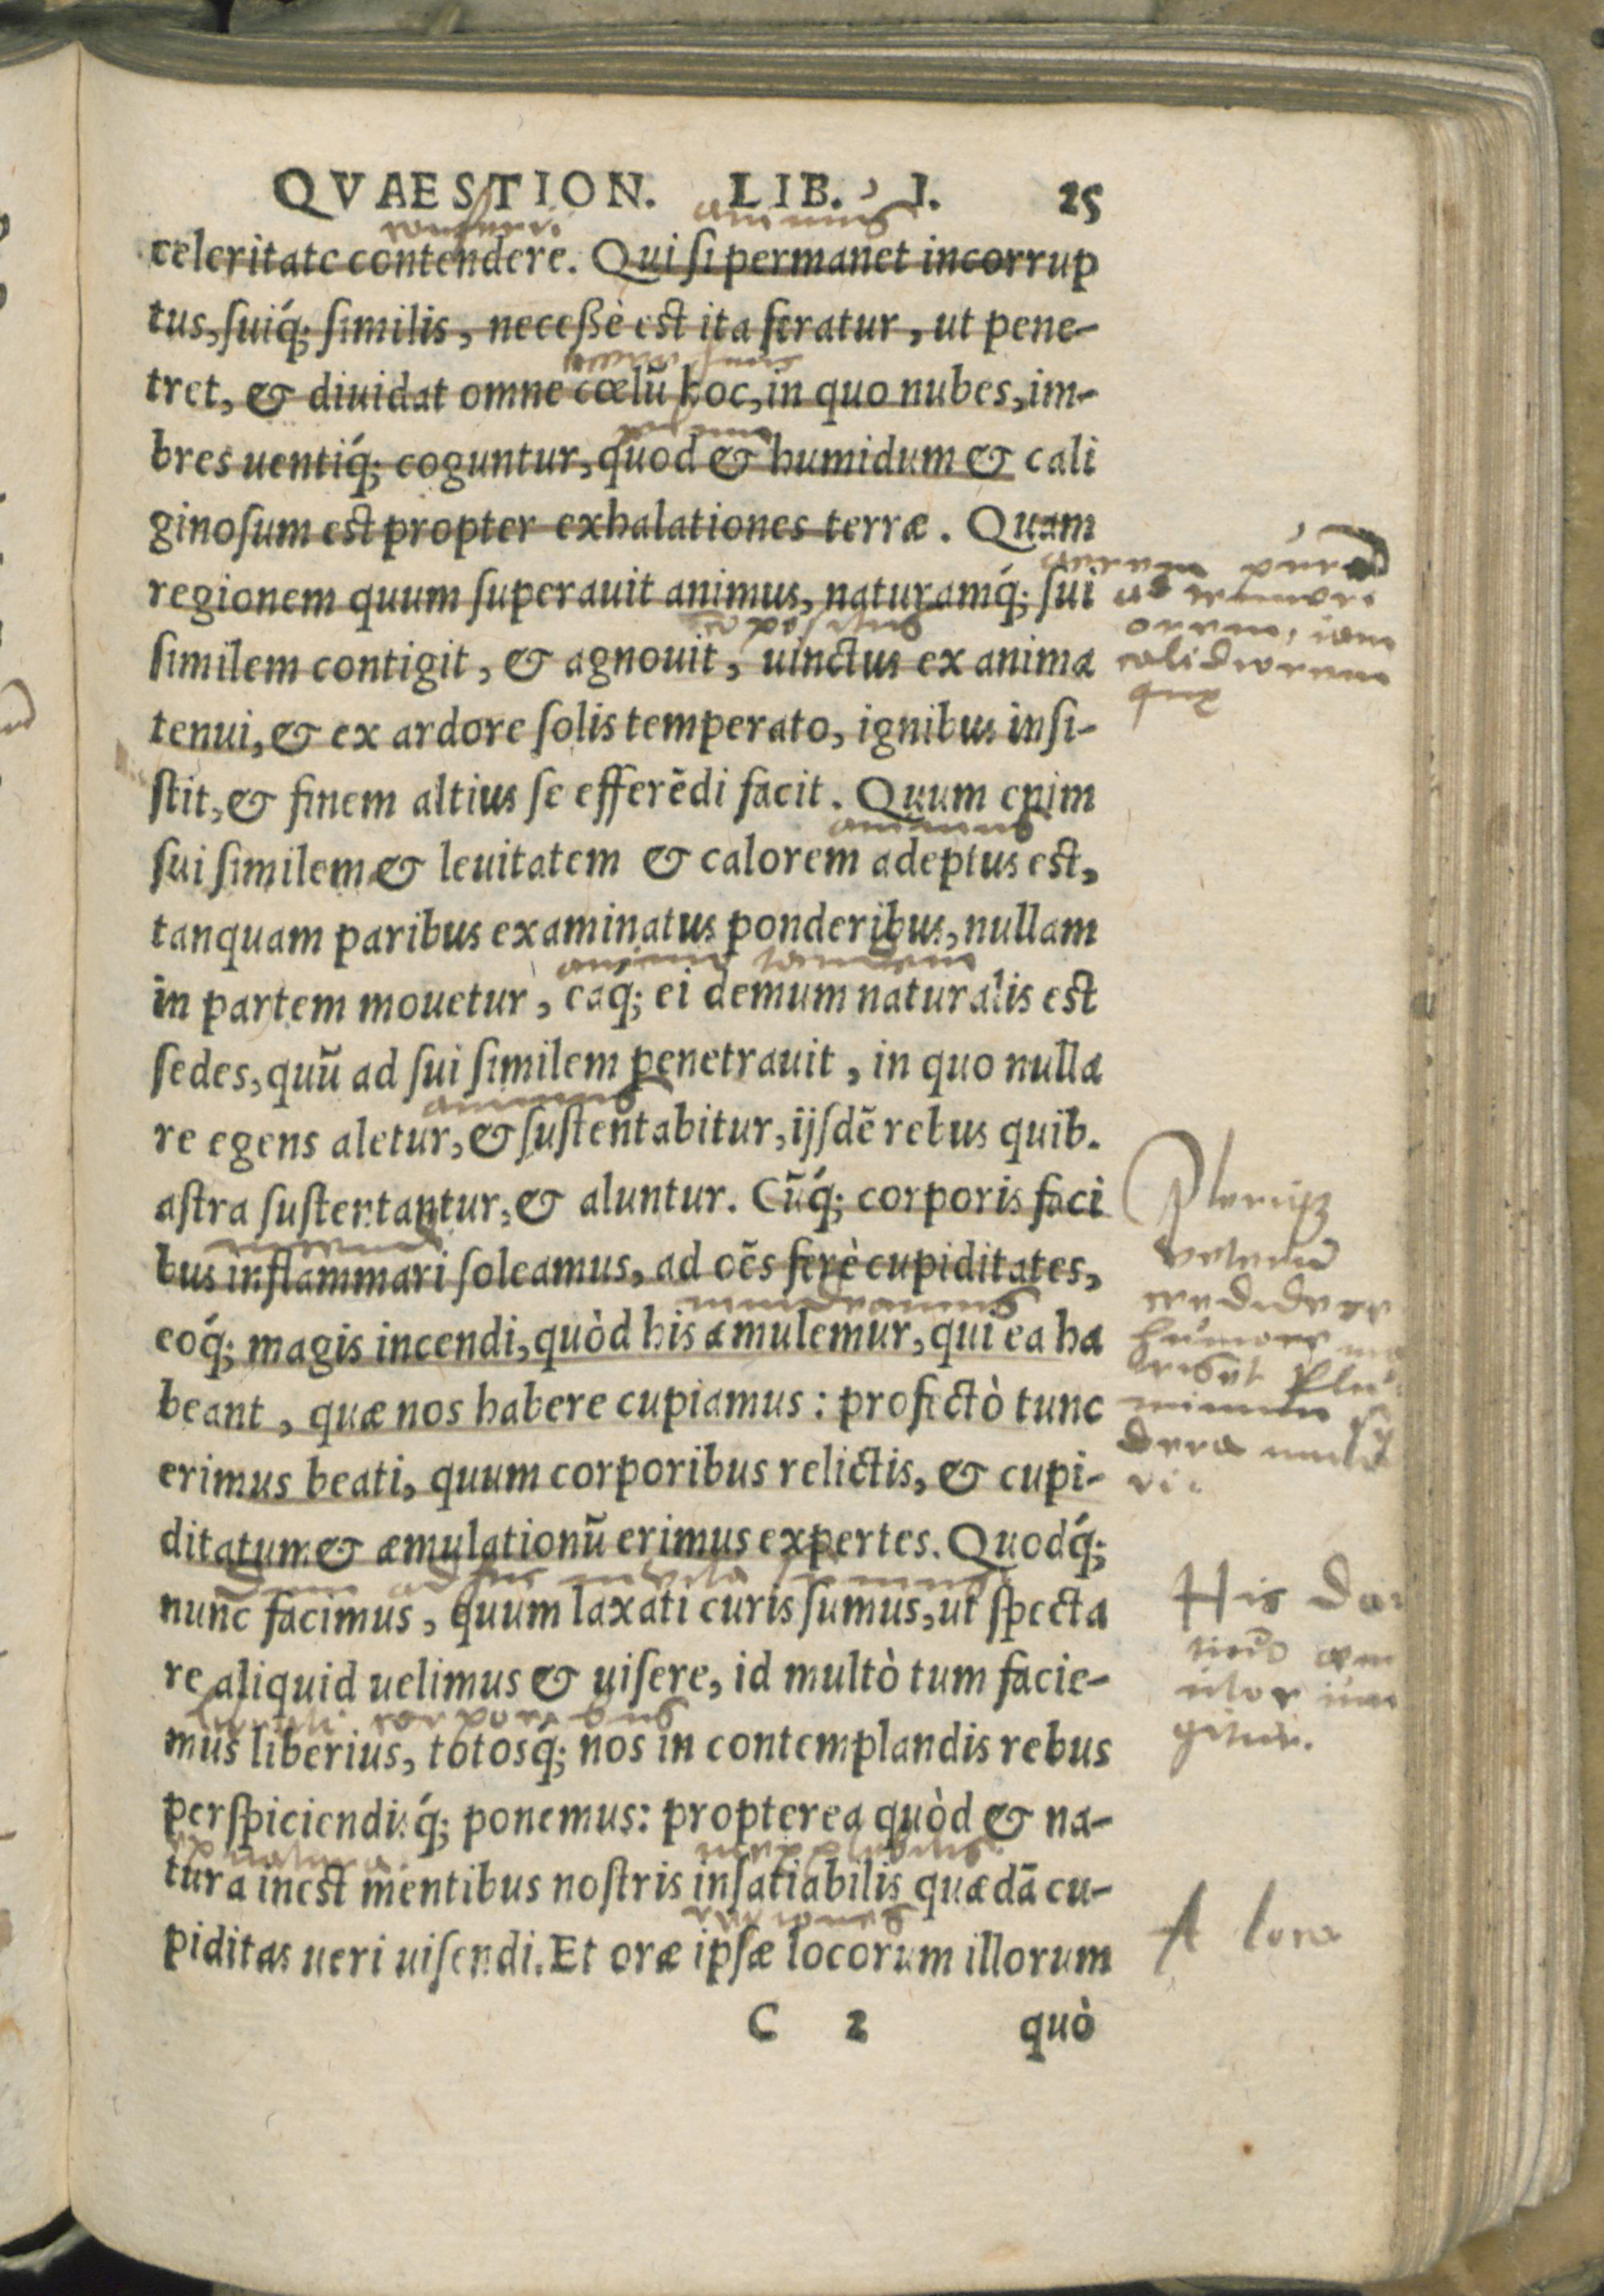 QVAESTION. LIB. I. 25
animus
celeritate contendere. Qui si permanet incorrup
tus, suiq́; similis, neceßè est ita feratur, ut pene-
tret, & diuidat omne cœlū hoc, in quo nubes, im-
bres uentiq́; coguntur, quod & humidum & cali
ginosum est propter exhalationes terræ. Quam
regionem quum superauit animus, naturamq́; sui
similem contigit, & agnouit, uinctus ex anima
tenui, & ex ardore solis temperato, ignibus insi-
stit, & finem altius se efferēdi facit. Quum enim
animus
sui similem & leuitatem & calorem adeptus est,
tanquam paribus examinatus ponderibus, nullam
animo tandem
in partem mouetur, eaq; ei demum naturalis est
sedes, quū ad sui similem penetrauit, in quo nulla
animus
re egens aletur, & sustentabitur, ijsdē rebus quib.
astra sustentantur, & aluntur. Cūq́; corporis faci
bus inflammari soleamus, ad oēs ferè cupiditates,
eoq́; magis incendi, quòd his æmulemur, qui ea ha
beant, quæ nos habere cupiamus: profectò tunc
erimus beati, quum corporibus relictis, & cupi-
ditatum & æmulationū erimus expertes. Quodq́;
nunc facimus, quum laxati curis sumus, ut specta
re aliquid uelimus & uisere, id multò tum facie-
corporibus
mus liberius, totosq; nos in contemplandis rebus
perspiciendisq́; ponemus: propterea quòd & na-
tura inest mentibus nostris insatiabilis quædā cu-
piditas ueri uisendi. Et oræ ipsæ locorum illorum
C 2 quò
Pleriq;
veterū
credidere
humore
His da